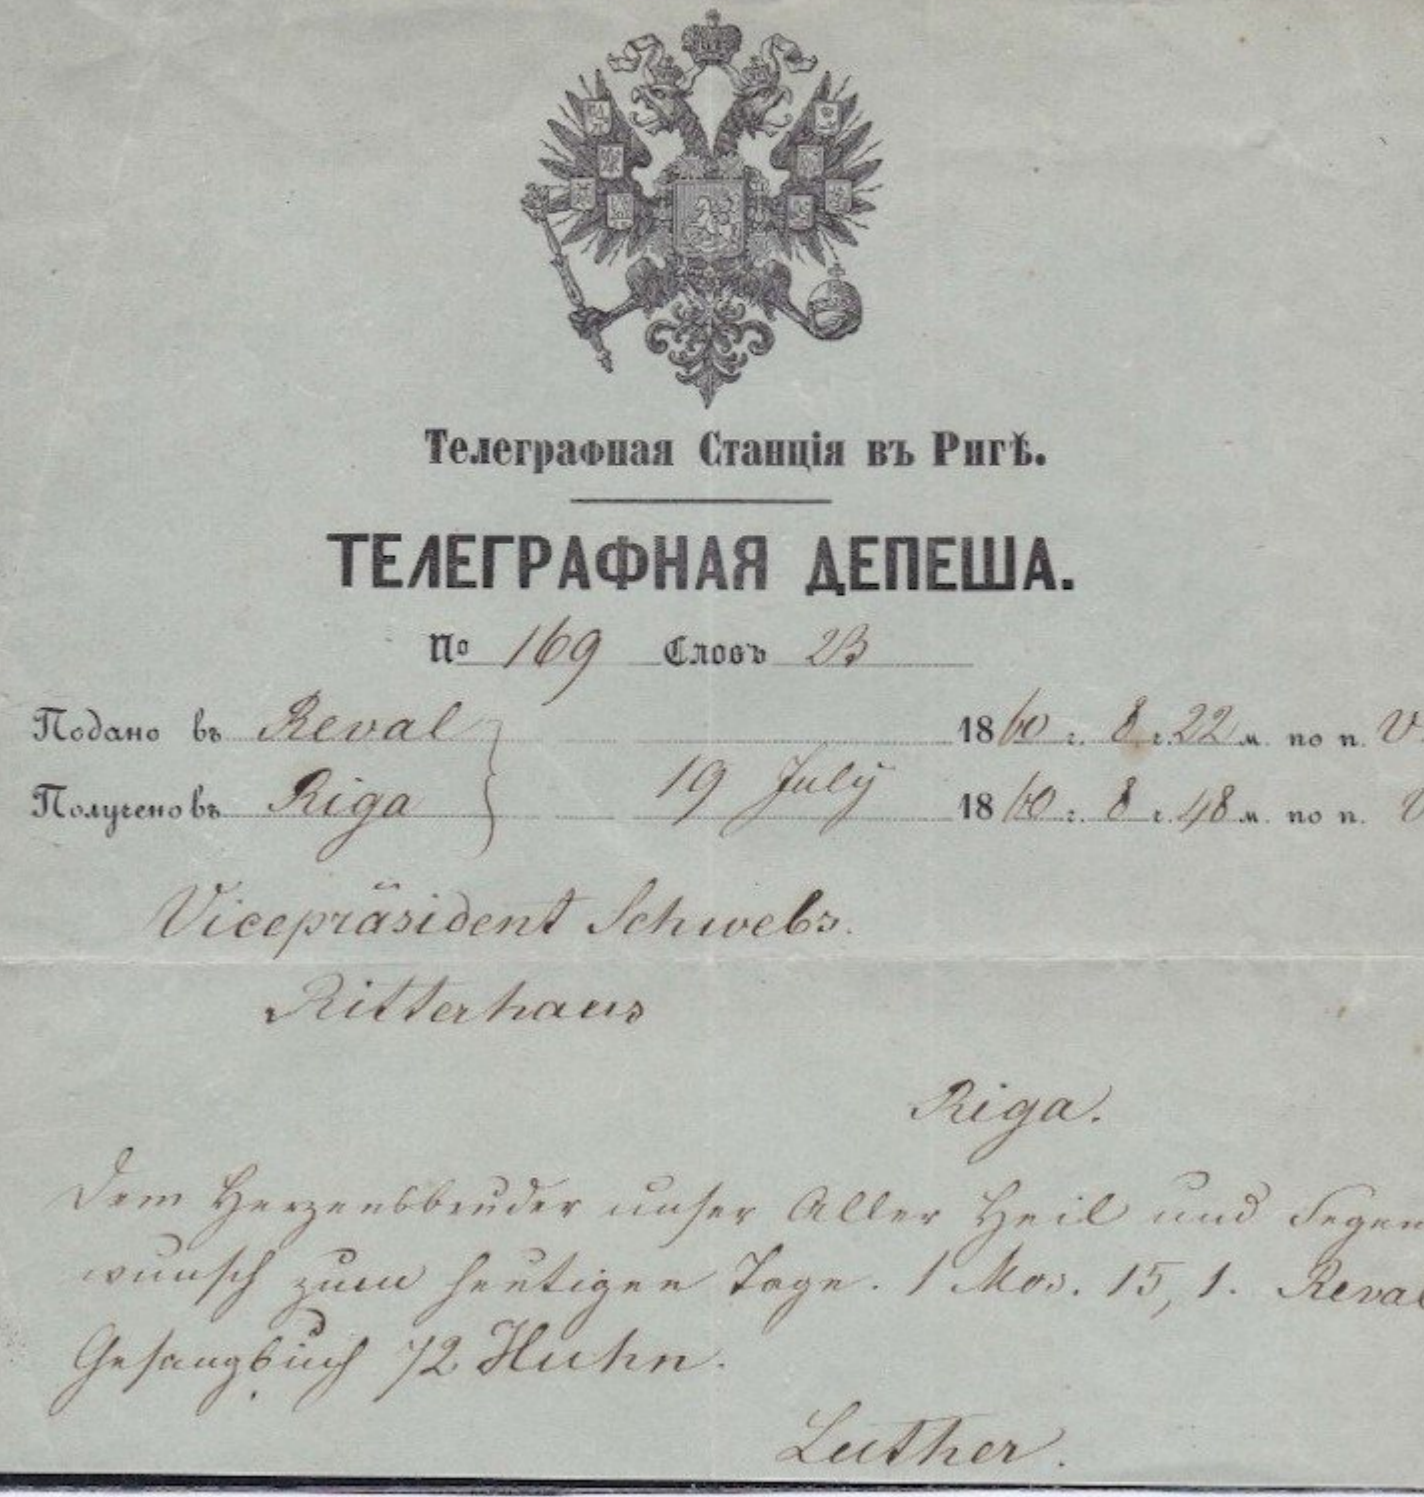 Телеграфная Станція въ Ригѣ.
ТЕЛЕГРАФНАЯ ДЕПЕША.
№ 169 Словъ 23
Подано въ Reval 1860 г. 8 ч. 22 м. по п.
19 July
Получено въ Riga 1860 г. 8 ч. 48 м. по п.
Vicepräsident Schwebs.
Ritterhaus
Riga.
Dem Herzensbruder unser Aller Heil und Segen
wunsch zum heutigen Tage. 1 Mos. 15, 1. Reval
Gesangbuch 72 Huhn.
Luther.